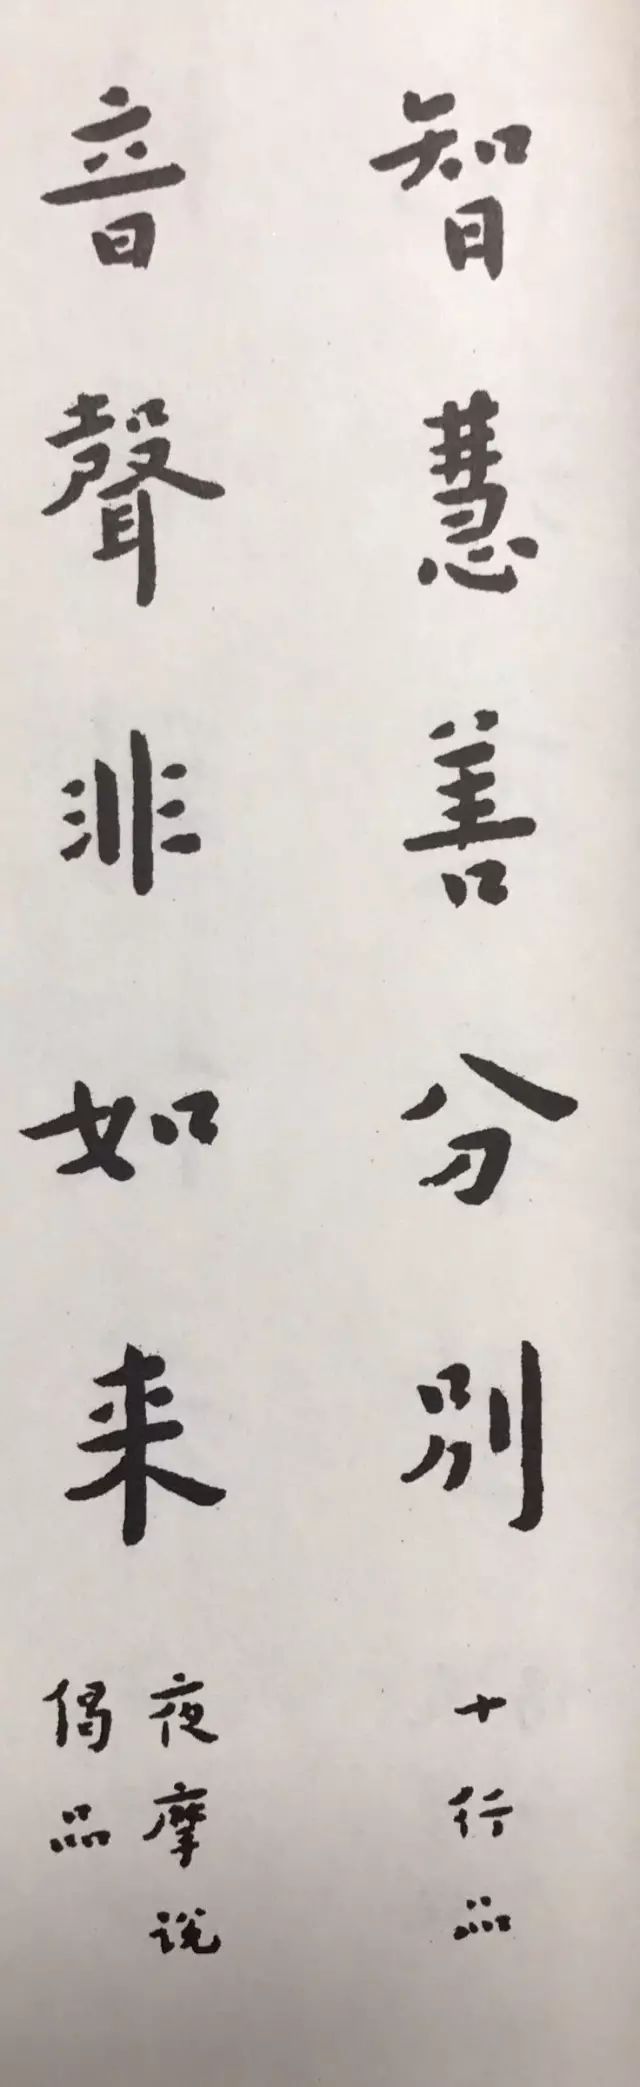 智慧善分別
十行品
音聲非如来
夜摩説
偈品